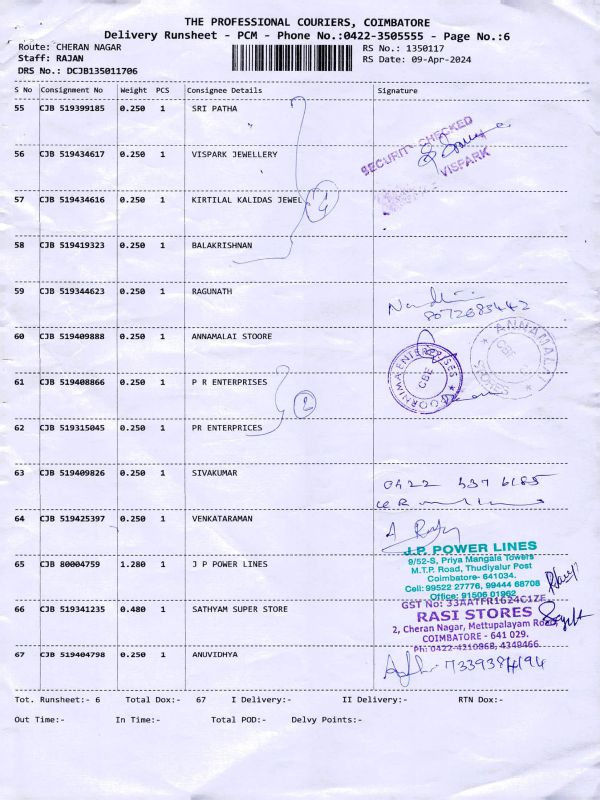 THE PROFESSIONAL COURIERS, COIMBATORE
Delivery Runsheet - PCM - Phone No.:0422-3505555 - Page No.:6
Route: CHERAN NAGAR RS No.: 1350117
Staff: RAJAN RS Date: 09-Apr-2024
DRS No.: DCJB135011706
S No Consignment No Weight PCS Consignee Details Signature
55 CJB 519399185 0.250 1 SRI PATHA
SECURITY CHECKED
VISPARK
56 CJB 519434617 0.250 1 VISPARK JEWELLERY
57 CJB 519434616 0.250 1 KIRTILAL KALIDAS JEWEL
4
58 CJB 519419323 0.250 1 BALAKRISHNAN
59 CJB 519344623 0.250 1 RAGUNATH
8072685442
60 CJB 519409888 0.250 1 ANNAMALAI STOORE
ANNAMALAI STORES
CBE
POORNIMA ENTERPRISES
CBE
61 CJB 519408866 0.250 1 P R ENTERPRISES
2
62 CJB 519315045 0.250 1 PR ENTERPRICES
63 CJB 519409826 0.250 1 SIVAKUMAR
0422 537 6185
64 CJB 519425397 0.250 1 VENKATARAMAN
65 CJB 80004759 1.280 1 J P POWER LINES
J.P. POWER LINES
9/52-S, Priya Mangala Towers
M.T.P. Road, Thudiyalur Post
Coimbatore- 641034.
Cell: 99522 27776, 99444 68708
Office: 91506 01962
66 CJB 519341235 0.480 1 SATHYAM SUPER STORE
GST No: 33AATFR1624C1ZE
RASI STORES
2, Cheran Nagar, Mettupalayam Road,
COIMBATORE - 641 029.
Ph: 0422-4210868, 4349466
67 CJB 519404798 0.250 1 ANUVIDHYA
7339384194
Tot. Runsheet:- 6 Total Dox:- 67 I Delivery:- II Delivery:- RTN Dox:-
Out Time:- In Time:- Total POD:- Delvy Points:-